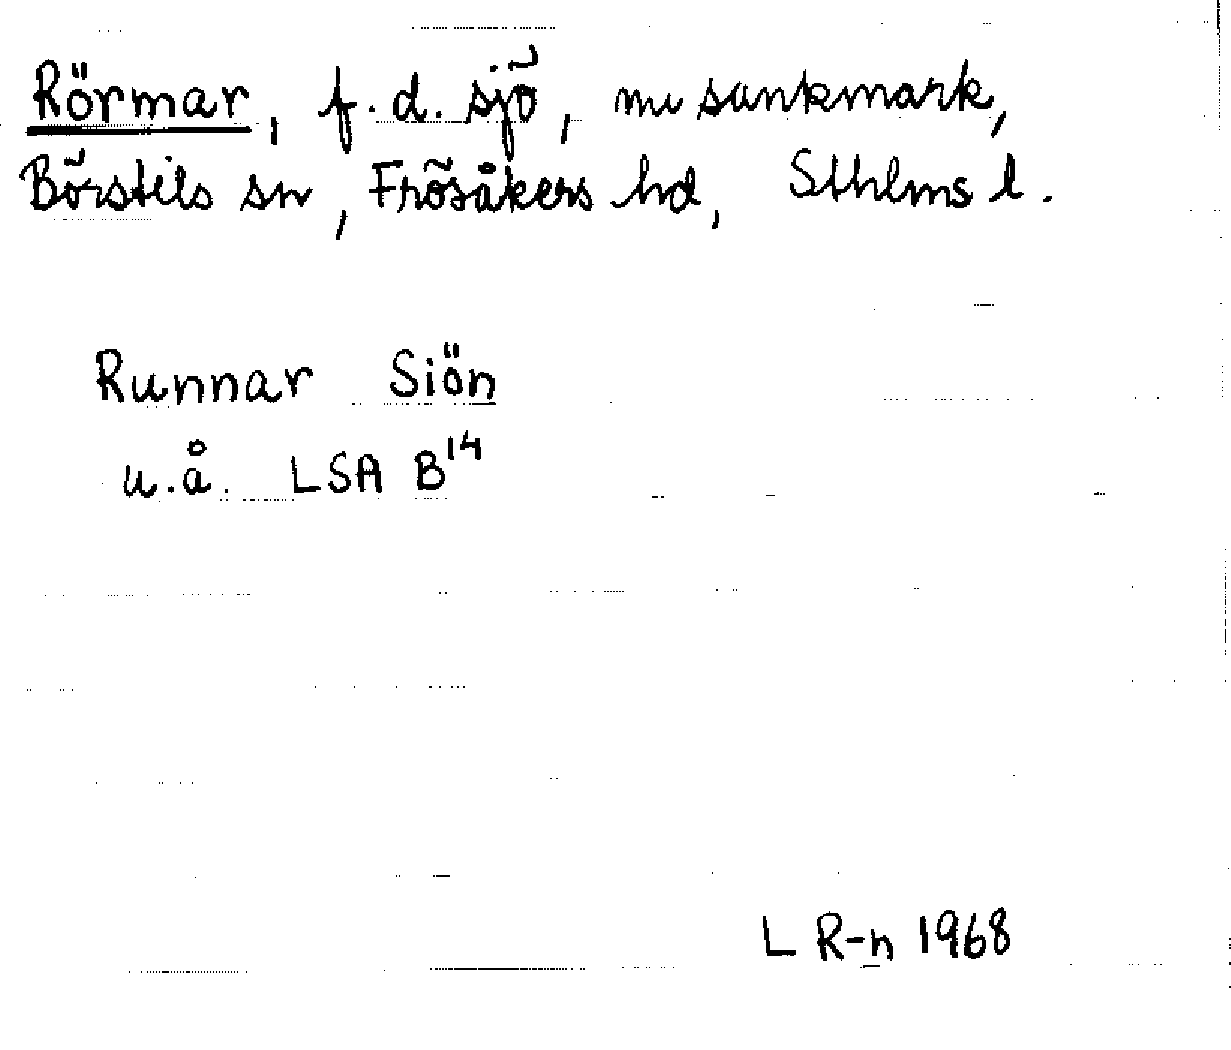 Rörmar, f.d. sjö, nu sankmark,
Börstils sn, Frösåkers hd, Sthlms l.
Runnar Siön
u.å. LSA B¹⁴
L R-n 1968